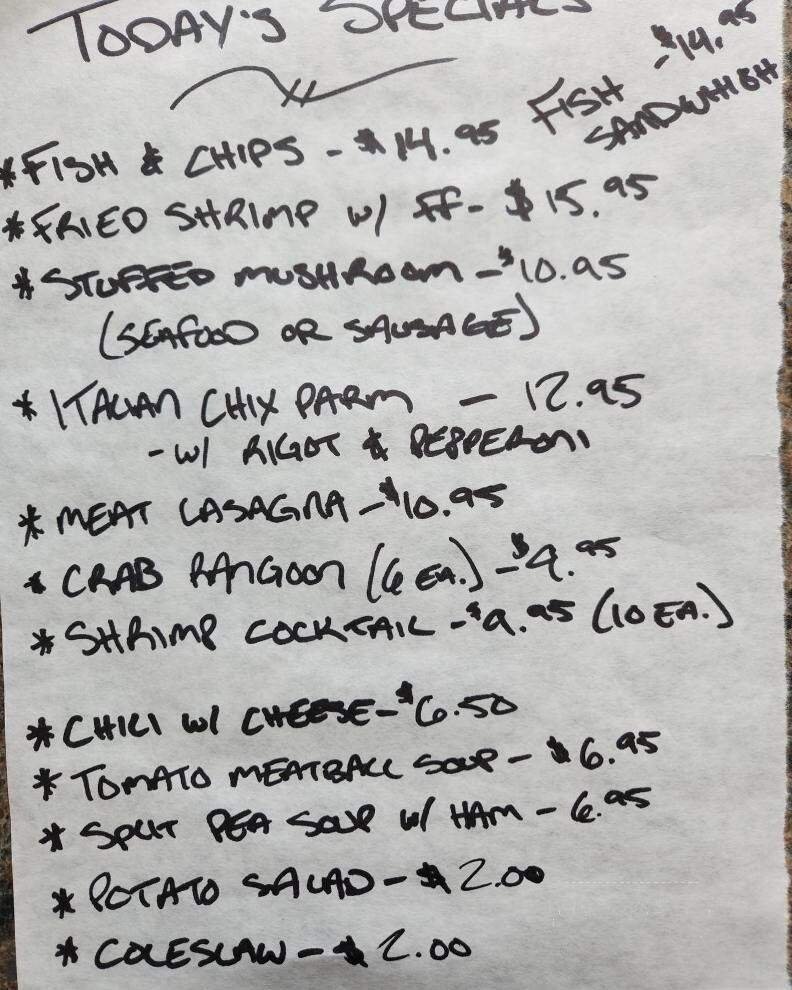 TODAY'S SPECIALS
FISH - $14.95
SANDWHICH
* FISH & CHIPS - $14.95
* FRIED SHRIMP w/ ff - $15.95
* STUFFED MUSHROOM - $10.95
(SEAFOOD OR SAUSAGE)
* ITALIAN CHIX PARM - 12.95
- w/ RIGOT & PEPPERONI
* MEAT LASAGNA - $10.95
* CRAB RANGOON (6 EA.) - $9.95
* SHRIMP COCKTAIL - $9.95 (10 EA.)
* CHILI w/ CHEESE - $6.50
* TOMATO MEATBALL SOUP - $6.95
* SPLIT PEA SOUP w/ HAM - 6.95
* POTATO SALAD - $2.00
* COLESLAW - $2.00